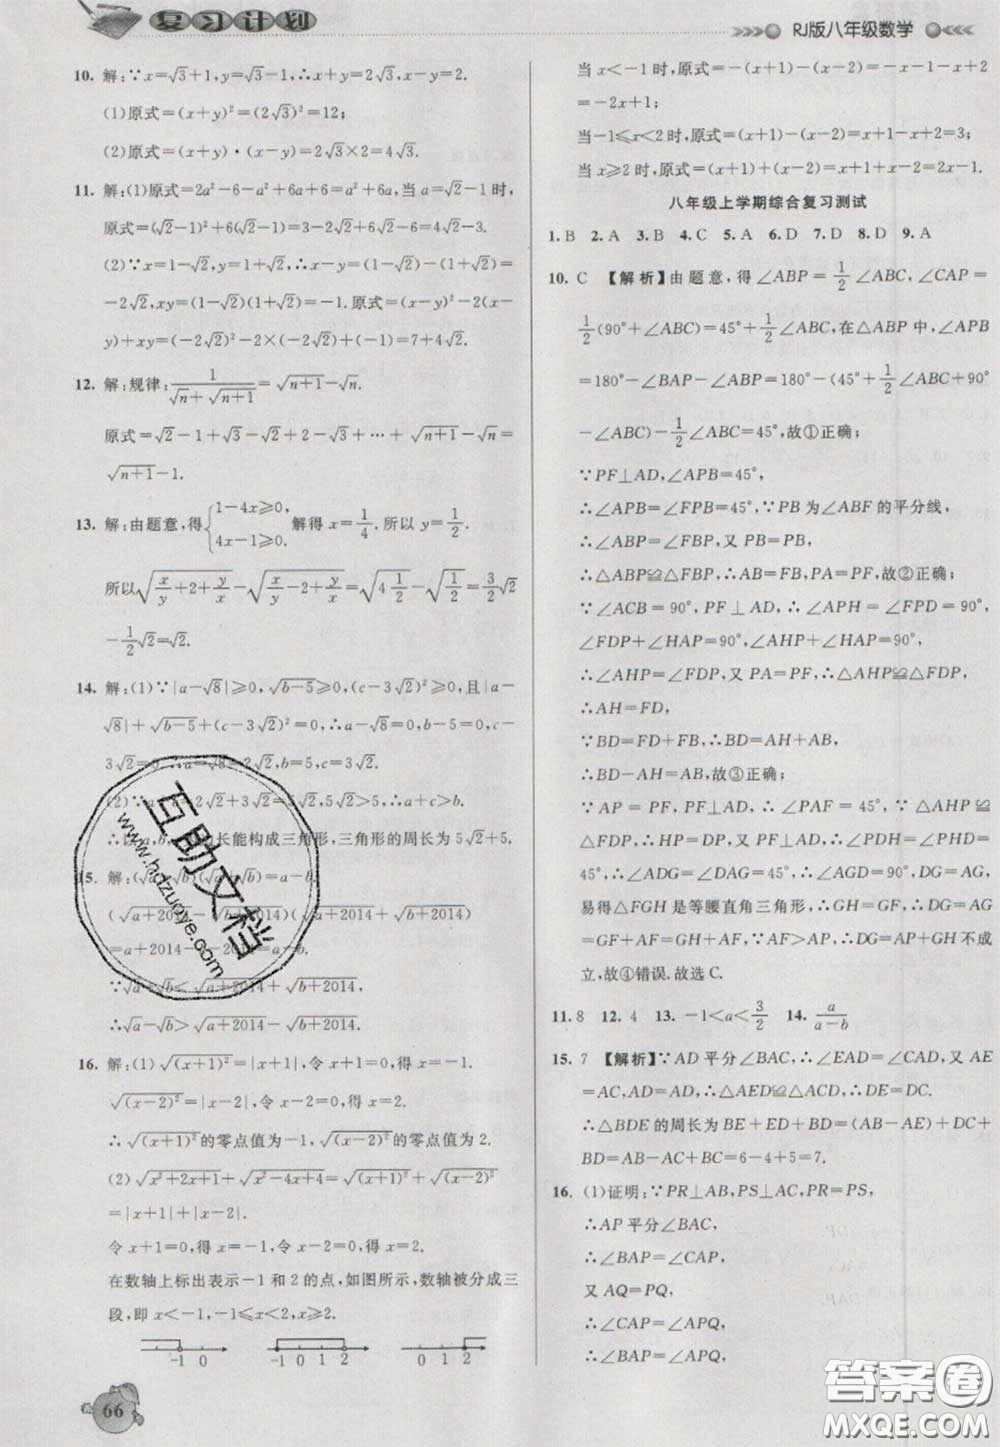 复习计划
RJ版八年级数学
10. 解:∵x=√3+1,y=√3-1,∴x+y=2√3,x-y=2.
(1)原式=(x+y)²=(2√3)²=12;
(2)原式=(x+y)·(x-y)=2√3×2=4√3.
11. 解:(1)原式=2a²-6-a²+6a+6=a²+6a,当a=√2-1时,
原式=(√2-1)²+6(√2-1)=3-2√2+6√2-6=4√2-3.
(2)∵x=1-√2,y=1+√2,∴x-y=(1-√2)-(1+√2)=
-2√2,xy=(1-√2)(1+√2)=-1.原式=(x-y)²-2(x-
y)+xy=(-2√2)²-2×(-2√2)+(-1)=7+4√2.
12. 解:规律:1/(√n+√(n+1))=√(n+1)-√n.
原式=√2-1+√3-√2+√4-√3+…+√(n+1)-√n=
√(n+1)-1.
13. 解:由题意,得{1-4x≥0, 4x-1≥0. 解得x=1/4. 所以y=1/2.
所以√(x/y+2+y/x)-√(x/y-2+y/x)=√(4 1/2)-√(1/2)=3/2√2
-1/2√2=√2.
14. 解:(1)∵|a-√8|≥0,√(b-5)≥0,(c-3√2)²≥0,且|a-
√8|+√(b-5)+(c-3√2)²=0,∴a-√8=0,b-5=0,c-
3√2=0.∴a=√8=2√2,b=5,c=3√2.
(2)∵2√2+3√2=5√2,5√2>5,∴a+c>b.
∴以a,b 长能构成三角形,三角形的周长为5√2+5.
15. 解:(√a √b)=a-b.
(√(a+2014)-√(b+2014))(√(a+2014)+√(b+2014))
=a+2014-b-2014=a-b.
∵√a+√b<√(a+2014)+√(b+2014),
∴√a-√b>√(a+2014)-√(b+2014).
16. 解:(1)√(x+1)²=|x+1|,令x+1=0,得x=-1.
√(x-2)²=|x-2|,令x-2=0,得x=2.
∴√(x+1)²的零点值为-1,√(x-2)²的零点值为2.
(2)√(x²+2x+1)+√(x²-4x+4)=√(x+1)²+√(x-2)²
=|x+1|+|x-2|.
令x+1=0,得x=-1.令x-2=0,得x=2.
在数轴上标出表示-1和2的点,如图所示,数轴被分成三
段,即x<-1,-1≤x<2,x≥2.
-1 0
-1 0 1 2
0 2
66
当x<-1时,原式=-(x+1)-(x-2)=-x-1-x+2
=-2x+1;
当-1≤x<2时,原式=(x+1)-(x-2)=x+1-x+2=3;
当x≥2时,原式=(x+1)+(x-2)=x+1+x-2=2x-1.
八年级上学期综合复习测试
1.B 2.A 3.B 4.C 5.A 6.D 7.D 8.D 9.A
10. C 【解析】由题意,得∠ABP=1/2∠ABC,∠CAP=
1/2(90°+∠ABC)=45°+1/2∠ABC,在△ABP中,∠APB
=180°-∠BAP-∠ABP=180°-(45°+1/2∠ABC+90°
-∠ABC)-1/2∠ABC=45°,故①正确;
∵PF⊥AD,∠APB=45°,
∴∠APB=∠FPB=45°,∵PB为∠ABF的平分线,
∴∠ABP=∠FBP,又PB=PB,
∴△ABP≌△FBP,∴AB=FB,PA=PF,故②正确;
∵∠ACB=90°,PF⊥AD,∴∠APH=∠FPD=90°,
∠FDP+∠HAP=90°,∠AHP+∠HAP=90°,
∴∠AHP=∠FDP,又PA=PF,∴△AHP≌△FDP,
∴AH=FD,
∵BD=FD+FB,∴BD=AH+AB,
∴BD-AH=AB,故③正确;
∵AP=PF,PF⊥AD,∴∠PAF=45°,∵△AHP≌
△FDP,∴HP=DP,又PF⊥AD,∴∠PDH=∠PHD=
45°,∴∠ADG=∠DAG=45°,∴DG=AG,
易得△FGH是等腰直角三角形,∴GH=GF,∴DG=
AG=GF+AF=GH+AF,∵AF>AP,∴DG=AP+GH不成
立,故④错误.故选C.
11.8 12.4 13.-1<a<3/2 14.a/(a-b)
15. 7 【解析】∵AD平分∠BAC,∴∠EAD=∠CAD,又AE
=AC,AD=AD,∴△ADE≌△ADC,∴DE=DC.
∴△BDE的周长为BE+ED+BD=(AB-AE)+DC+
BD=AB-AC+BC=6-4+5=7.
16. (1)证明:∵PR⊥AB,PS⊥AC,PR=PS,
∴AP平分∠BAC,
∴∠BAP=∠CAP,
又AQ=PQ,
∴∠CAP=∠APQ,
∴∠BAP=∠APQ,
互助文档
www.hdzuoye.com
答案圈
MXQE.COM